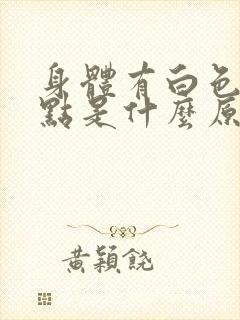 身體有白色
點是什麼原
黃穎饒